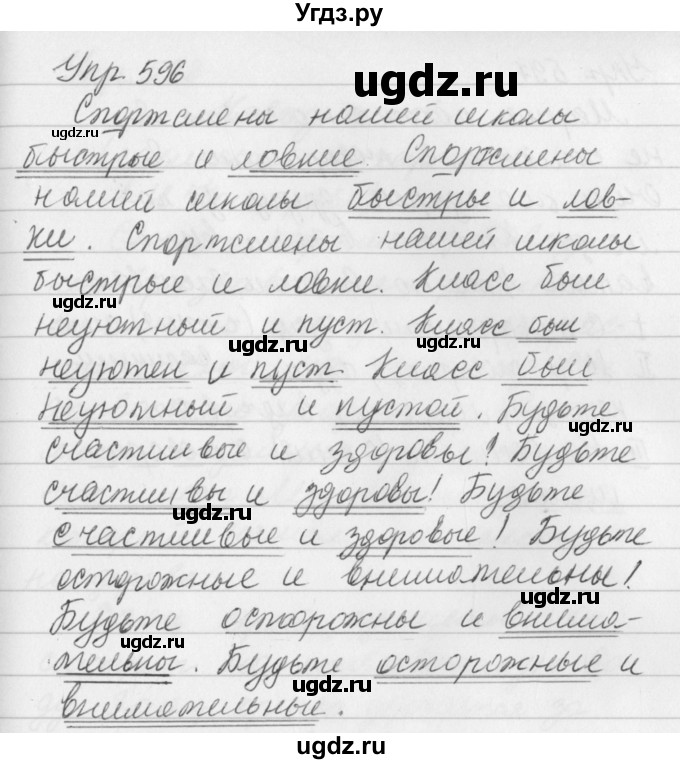 Угдз.ру
Упр 596
ugdz.ru
Спортсмены нашей школы
ugdz.ru
быстрые и ловкие. Спортсмены
ugdz.ru
нашей школы быстры и лов-
ки. Спортсмены нашей школы
быстрые и ловки. Класс был
ugdz.ru
неуютный и пуст. Класс был
ugdz.ru
ugdz.ru
неуютен и пуст. Класс был
неуютный и пустой. Будьте
счастливые и здоровы! Будьте
счастливы и здоровы! Будьте
ugdz.ru
счастливые и здоровые! Будьте
осторожные и внимательны!
ugdz.ru
Будьте осторожны и внима-
ugdz.ru
тельны. Будьте осторожные и
ugdz.ru
внимательные.
ugdz.ru